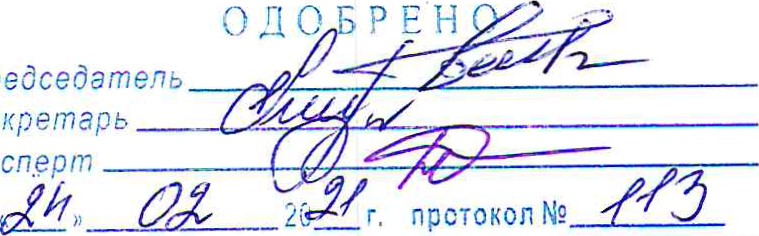 ОДОБРЕНО
едседатель
кретарь
сперт
24 » 02 2021 г. протокол № 113